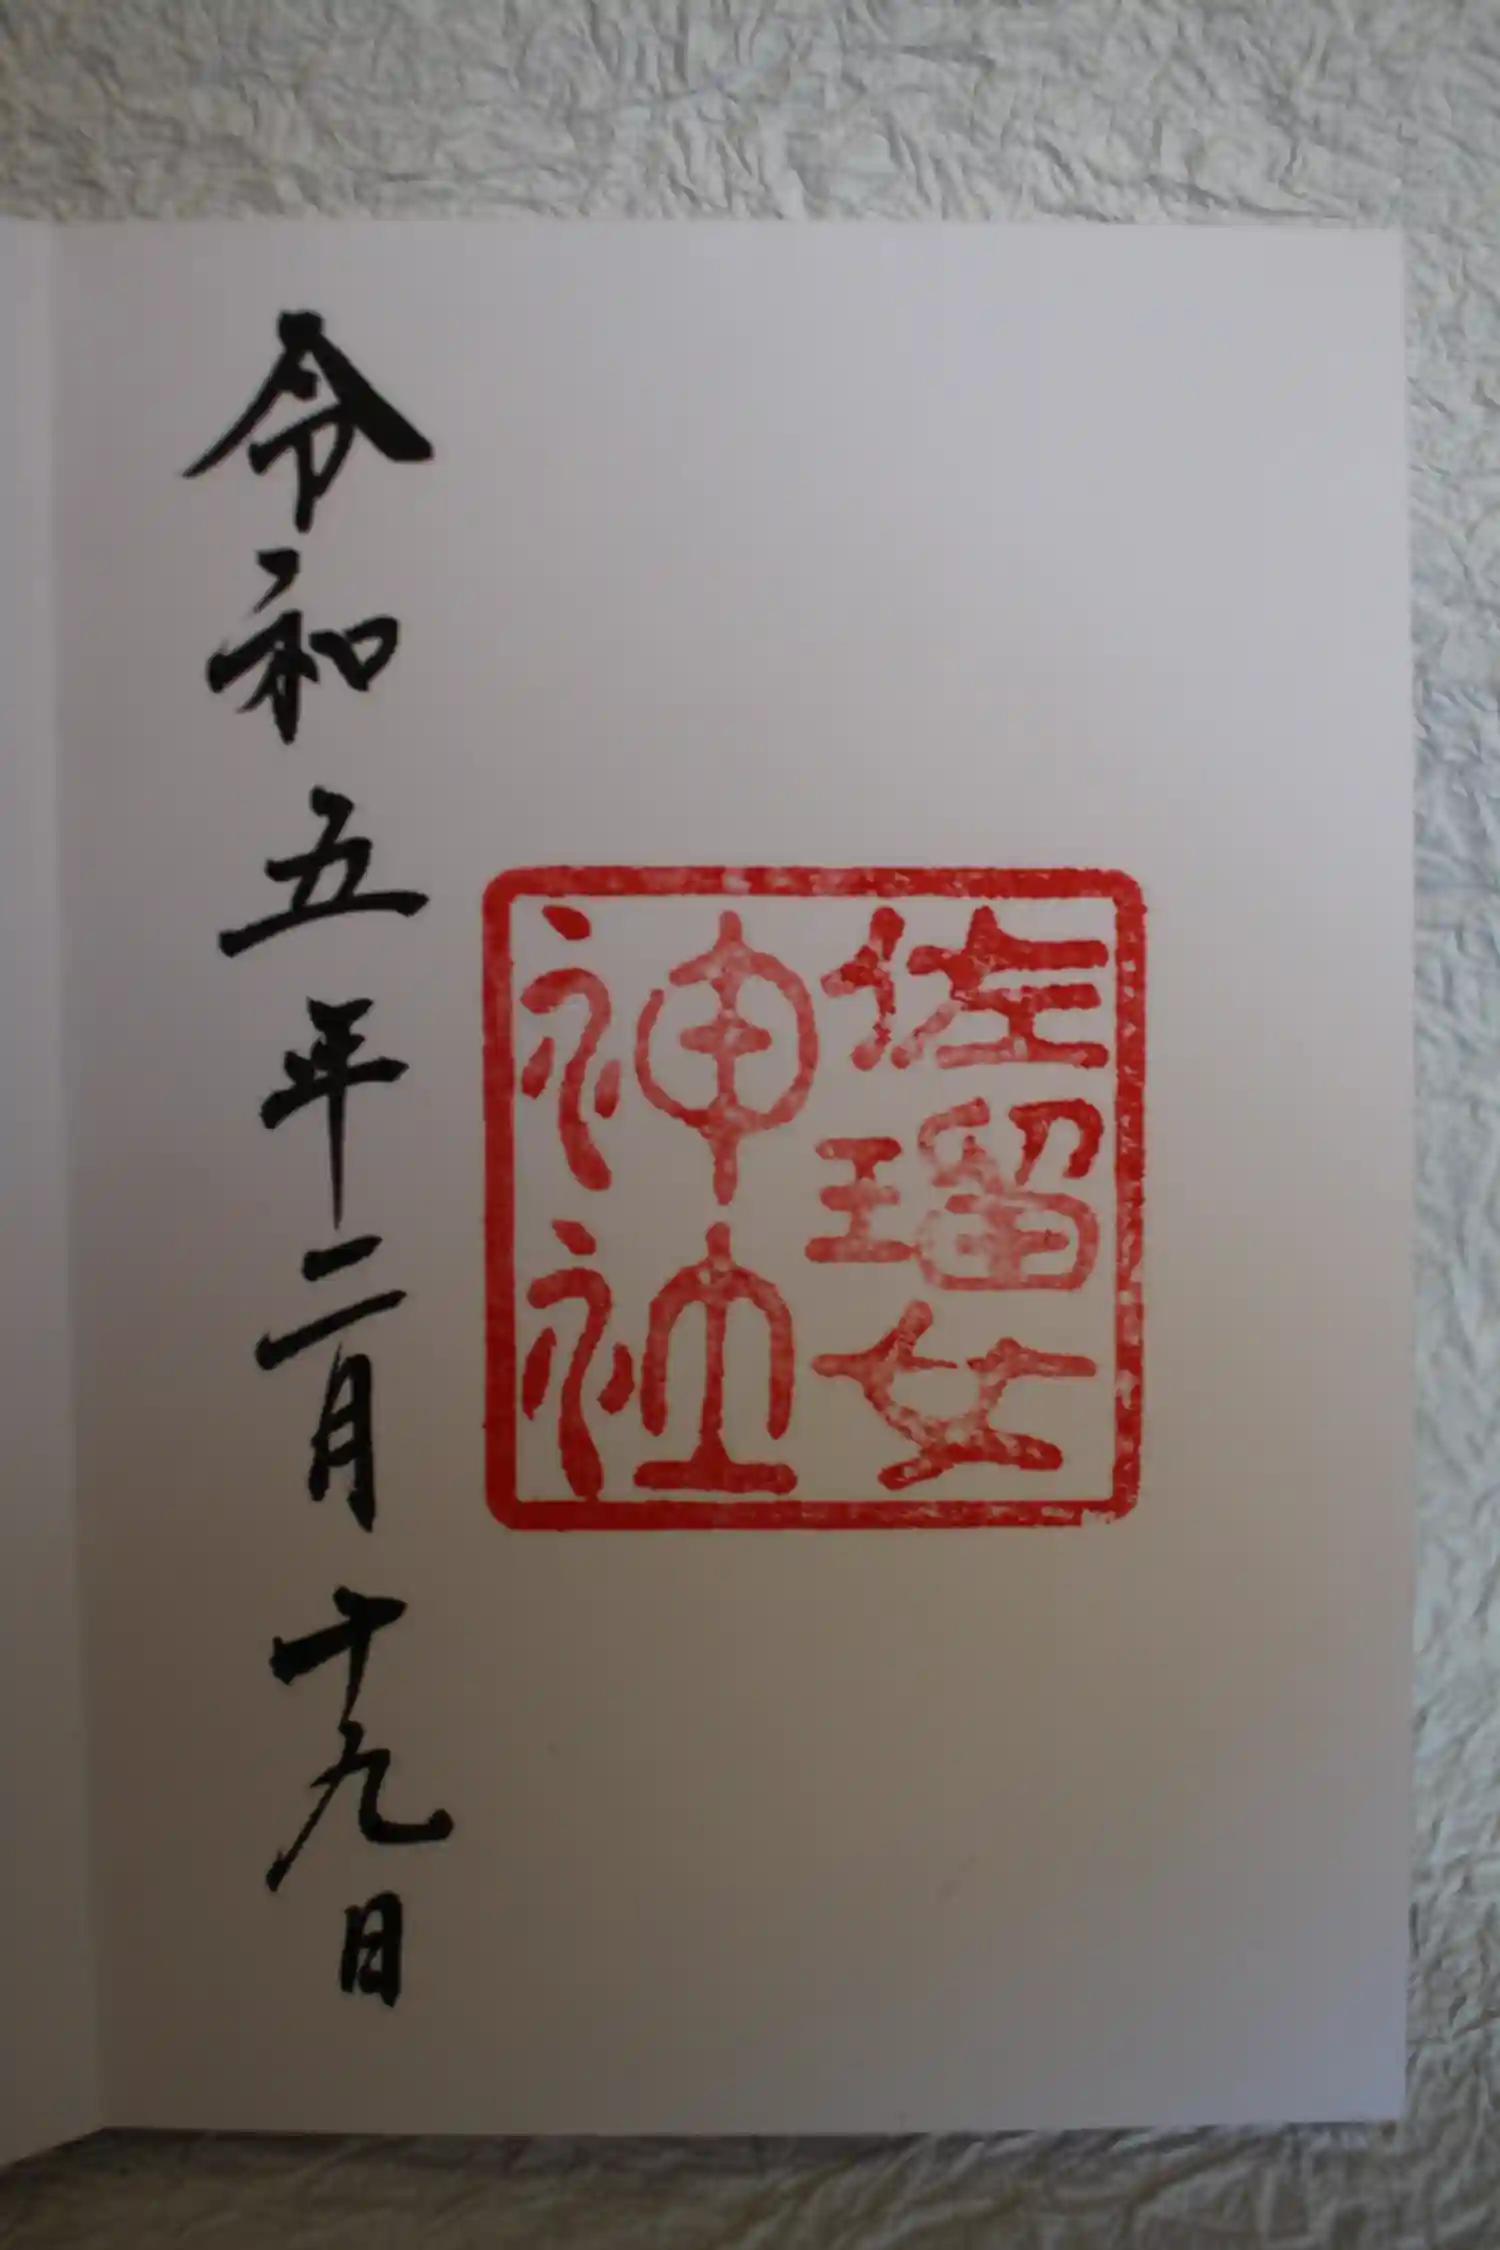 佐瑠女
神社
令和五年二月十九日